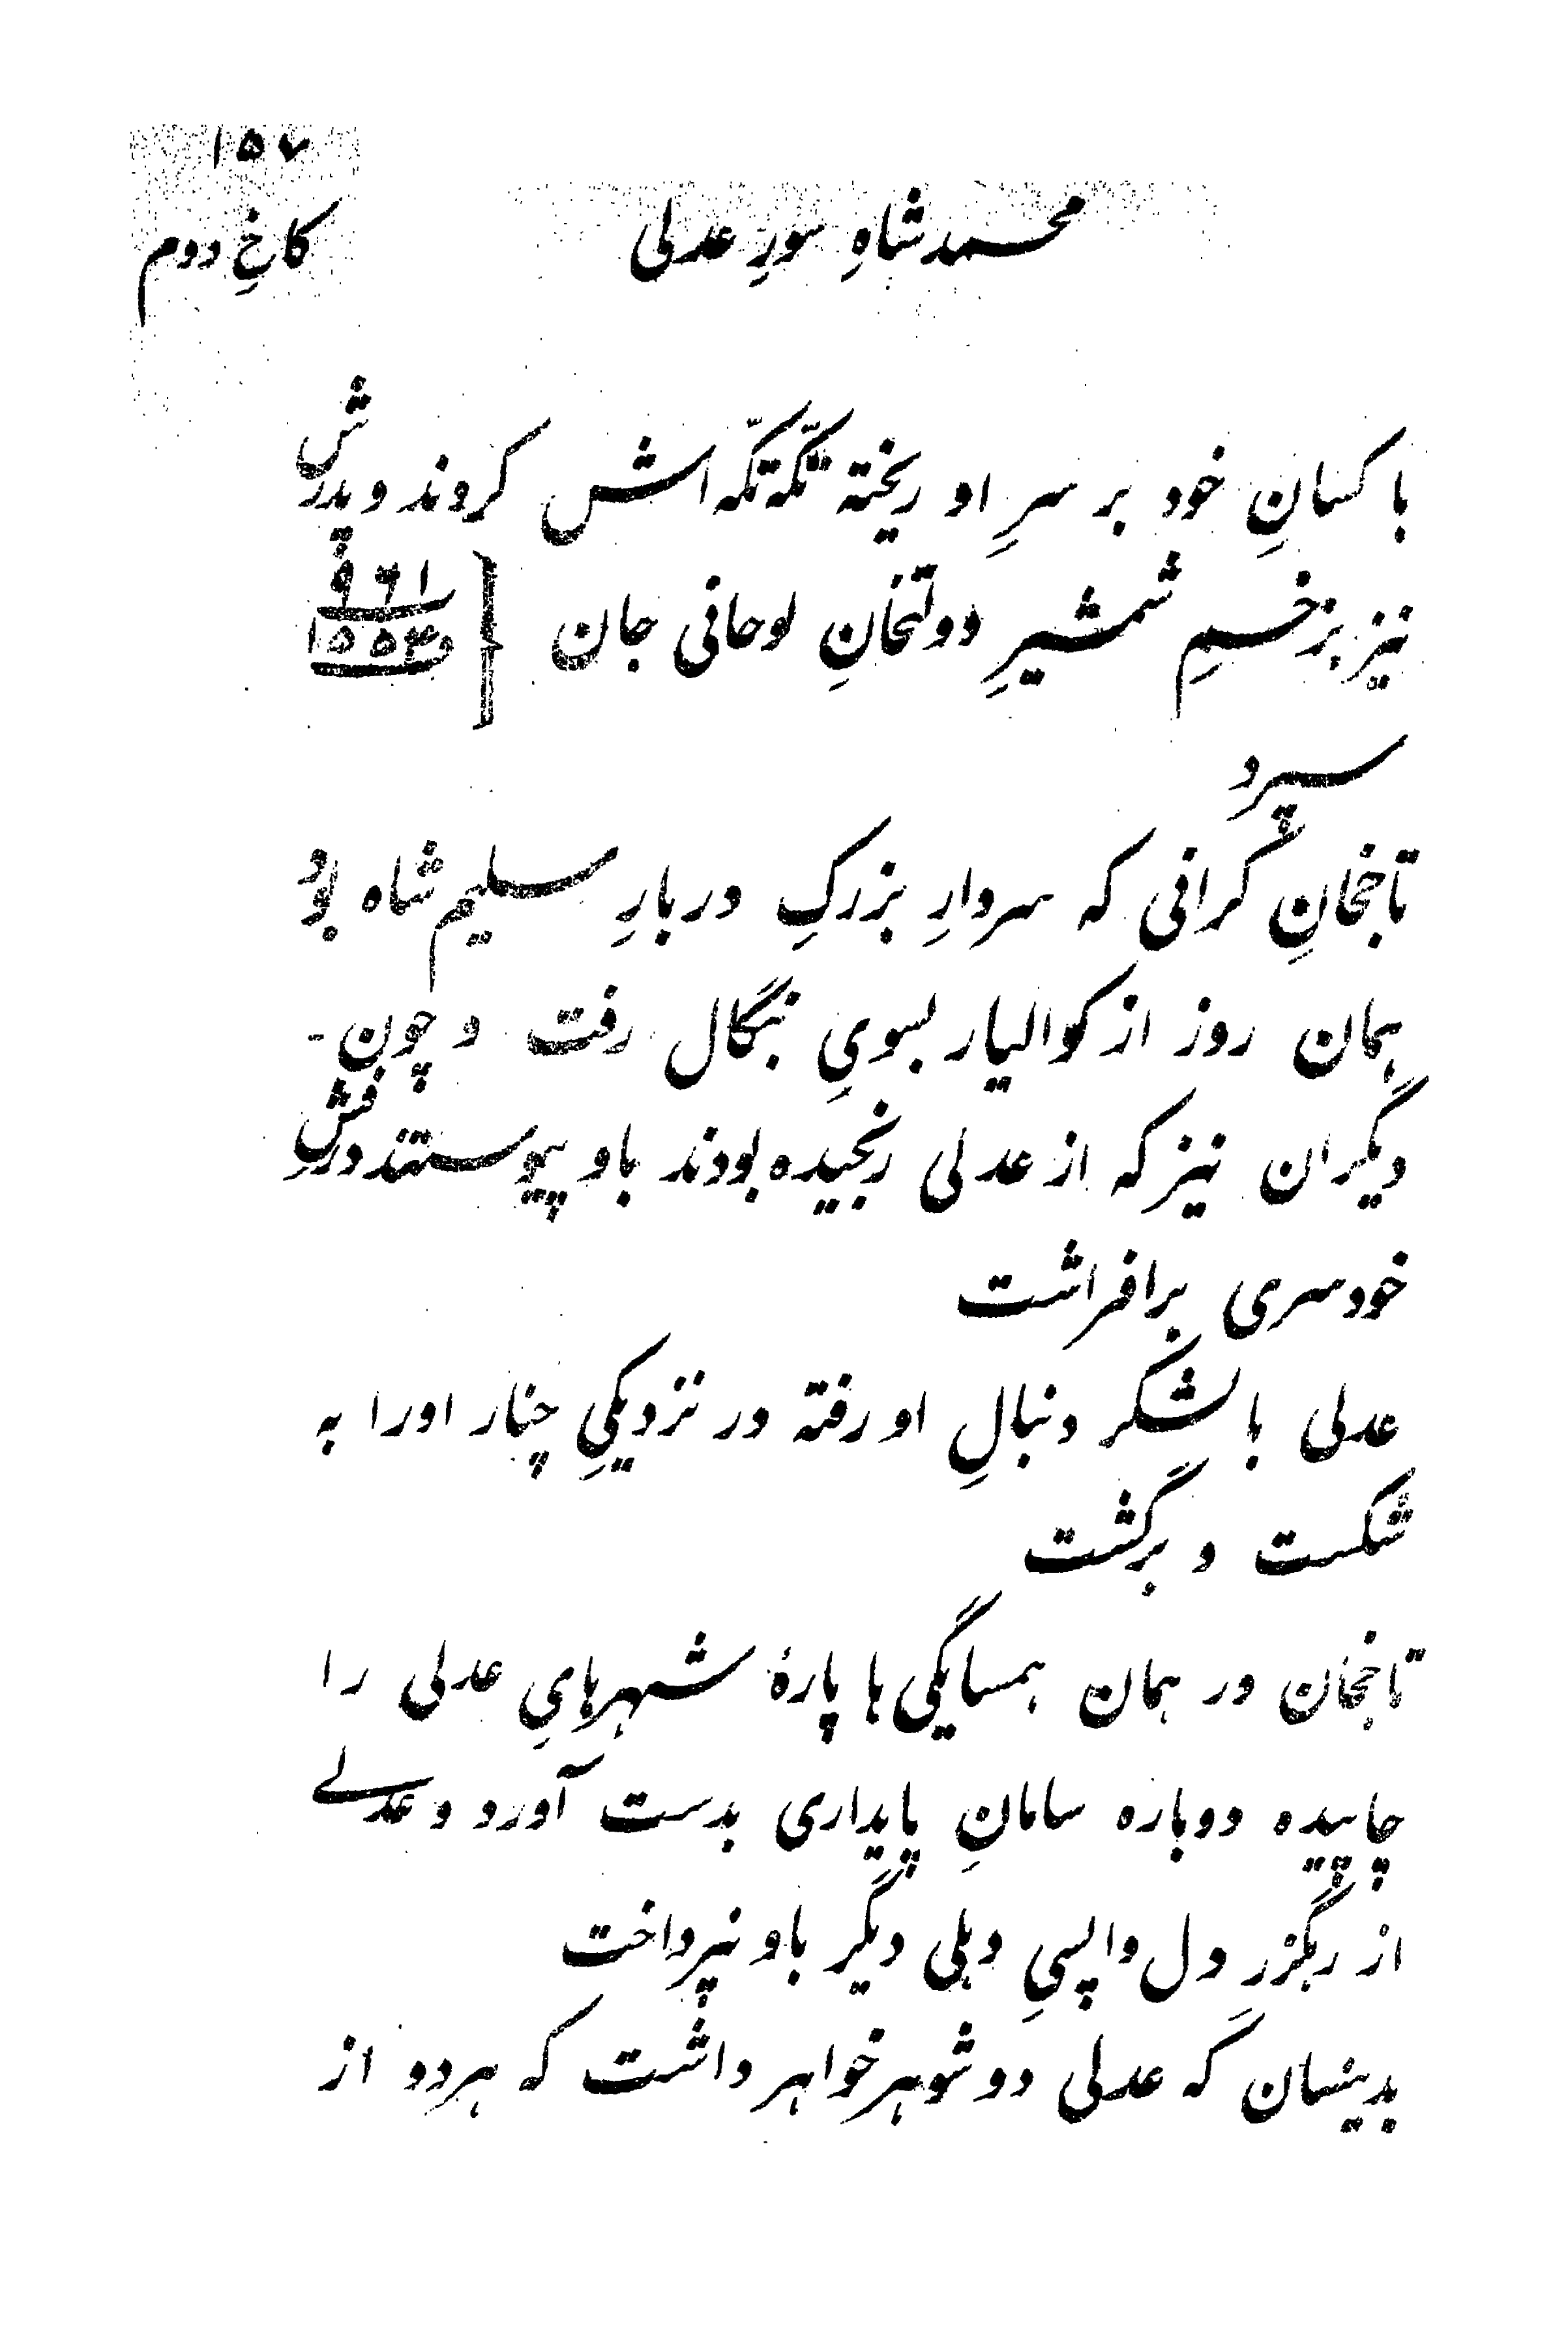 ۱۵۷
محمد شاهِ سورِ عدلی
کاخِ دوم
با کسانِ خود بر سرِ او ریخته تکّه تکّه اش کردند و پدرش
نیز بزخمِ شمشیرِ دولتخانِ لوحانی جان
۹۶۱
۱۵۵۳
سپرد
تاجخانِ کرانی که سردارِ بزرکِ دربارِ سلیم شاه بود
همان روز از کوالیار بسویِ بنگال رفت و چون -
دیگران نیز که از عدلی رنجیده بودند باو پیوستند درفشِ
خودسری برافراشت
عدلی با لشکر دنبالِ او رفته در نزدیکیِ چنار او را به
شکست و برگشت
تاجخان در همان همسایگی ها پارهٔ شهرهایِ عدلی را
چاپیده دوباره سامانِ پایداری بدست آورد و عدلے
از رهگزرِ دل واپسیِ دهلی دیگر باو نپرداخت
بدینسان که عدلی دو شوهر خواهر داشت که هر دو از